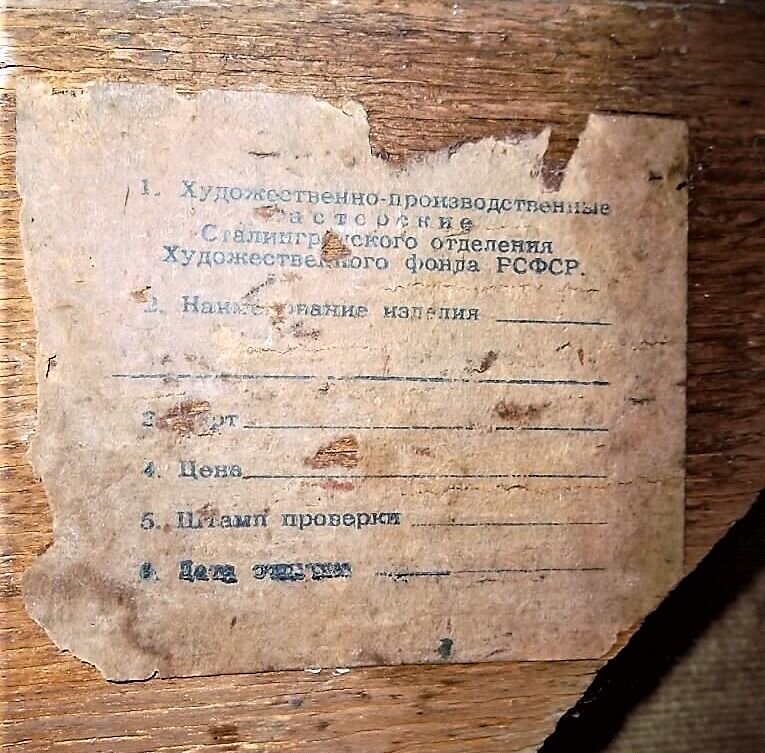 1. Художественно-производственные
мастерские
Сталинградского отделения
Художественного фонда РСФСР.
2. Наименование изделия
3. Сорт
4. Цена
5. Штамп проверки
6. Дата